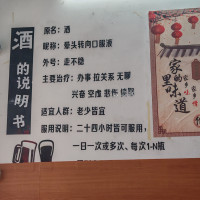 酒的说明书
原名：酒
昵称：晕头转向口服液
外号：走不稳
主要治疗：办事 拉关系 无聊
兴奋 空虚 悲伤 愤怒
适宜人群：老少皆宜
服用说明：二十四小时皆可服用，
一日一次或多次、每次1-N瓶
家的味道
家乡味